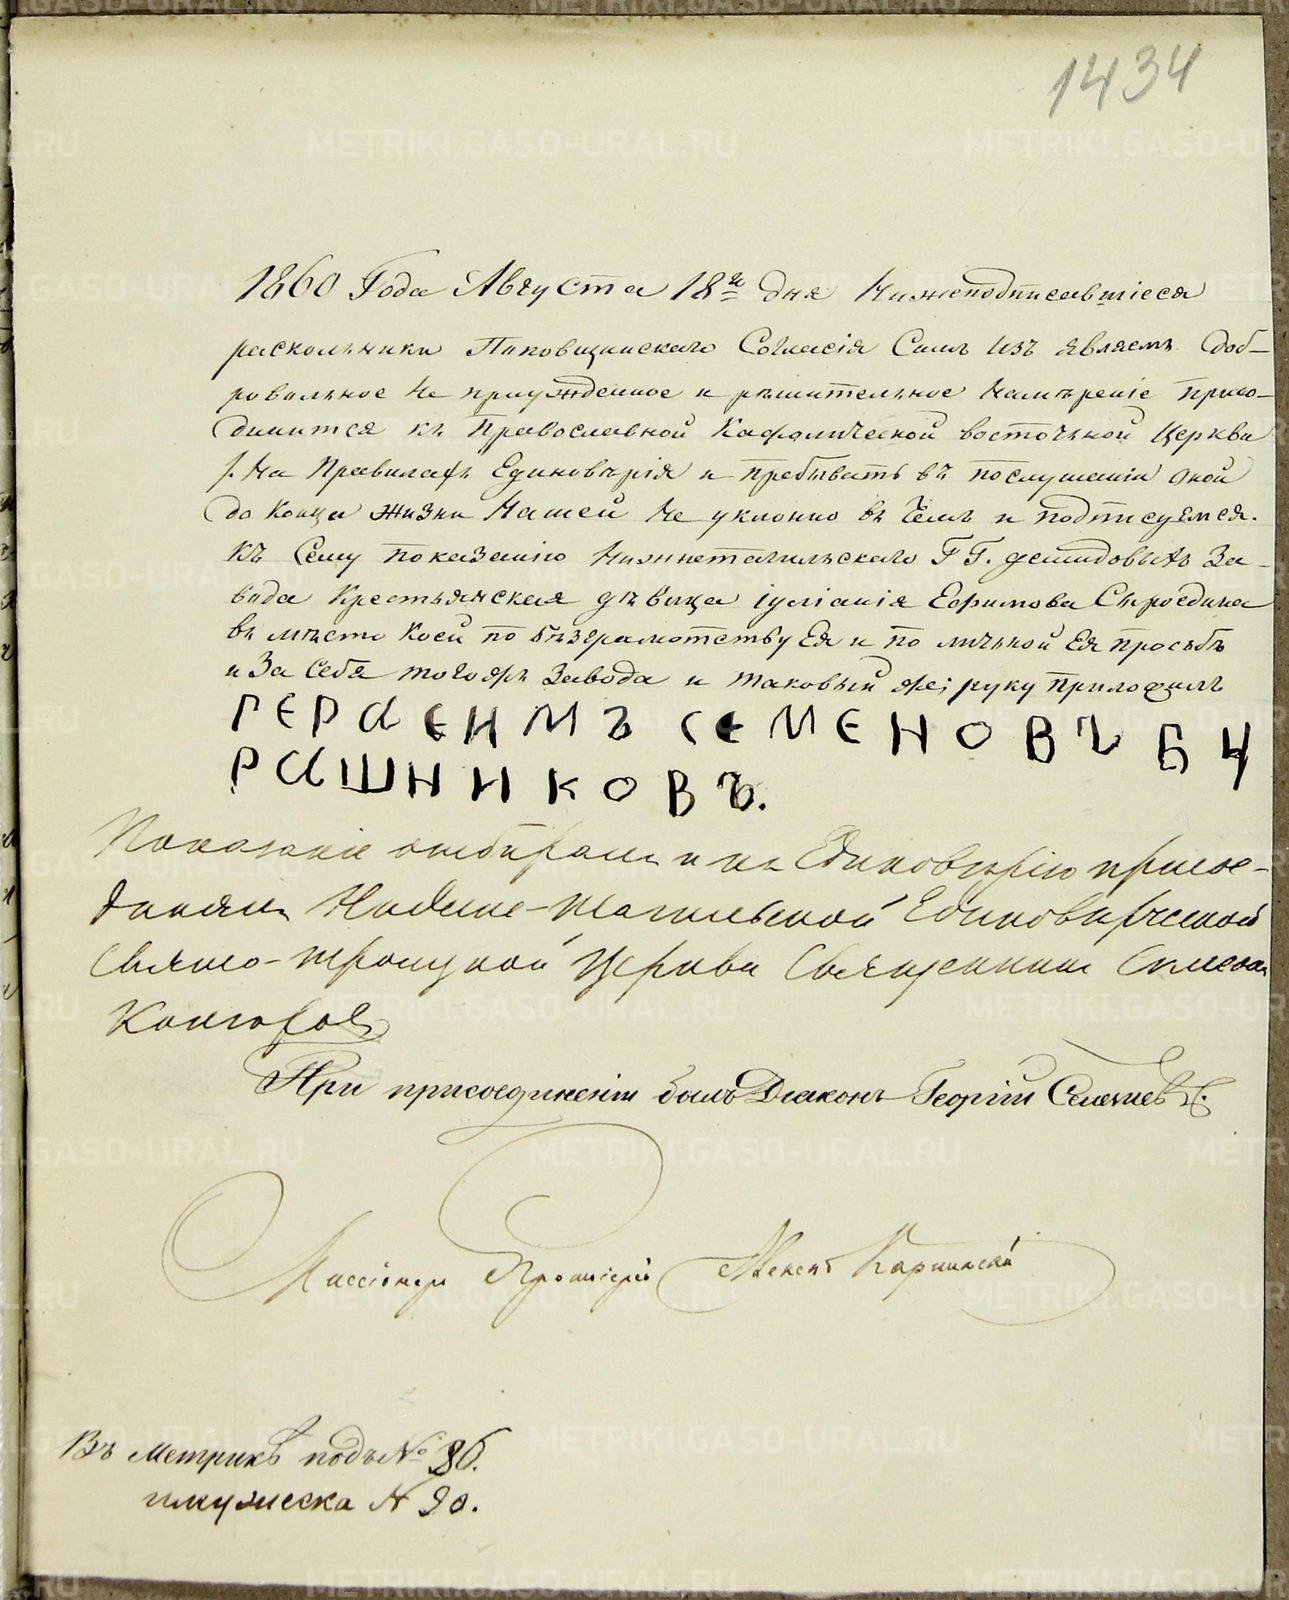 1434
1860 Года Августа 18го дня Нижеподписавшіеся
раскольники Поповщинскаго Согласія Симъ Изъ являемъ Доб-
ровольное Не принужденное и рѣшительное Намѣреніе присо-
Динится къ Православной Кафолической восточной Церкви
На Правилахъ Единовѣрія и пребывать въ послушаніи оной
до Конца жизни Нашей Не уклонно въ Чемъ и подписуемся.
къ Сему показанію Нижнетагильскаго ГГ. Демидовыхъ За-
вода Крестьянская дѣвица Іуліанія Ефимова Сыроедина
въ мѣсто Коей по безграмотству Ея и по личьной Ея просьбѣ
и За Себя тогожъ Завода и таковый же руку приложилъ
ГЕРАСИМЪ СЕМЕНОВЪ БА
РАШНИКОВЪ.
Показаніе отбиралъ и къ Единовѣрію присое-
динялъ Нижне-Тагильской Единовѣрческой
Свято-Троицкой Церкви Священникъ Стефанъ
При присоединеніи былъ Діаконъ Георгій
Миссіонеръ Протоіерей
Въ Метрикѣ подъ № 86.
мужеска № 90.
METRIKI.GASO-URAL.RU